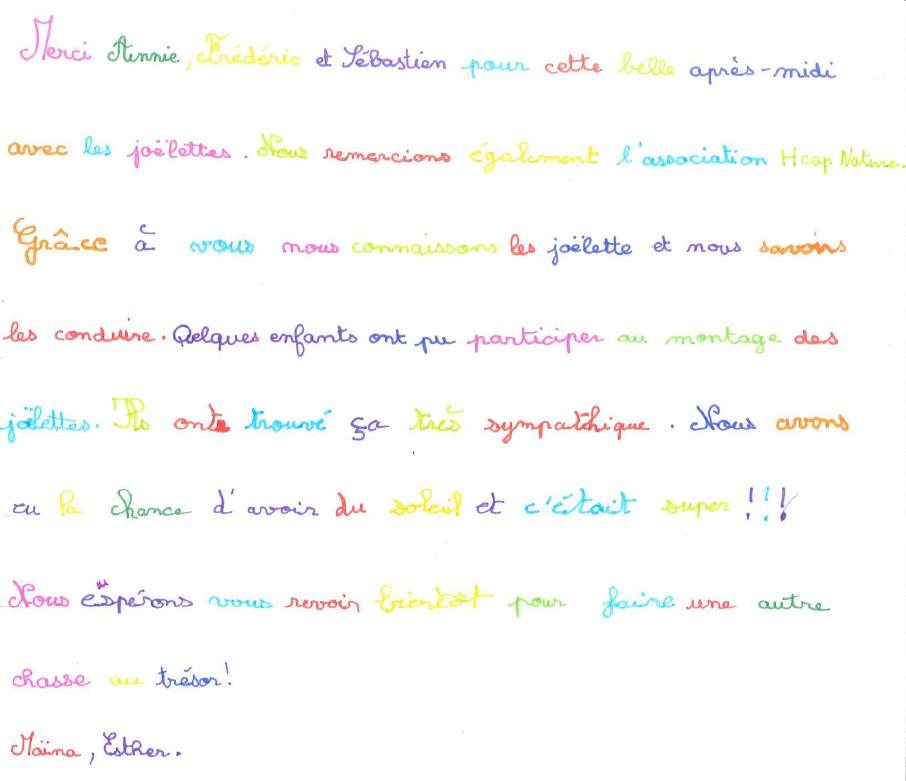 Merci Annie, Frédéric et Sébastien pour cette belle après-midi
avec les joëlettes. Nous remercions également l'association Hcap Nature.
Grâce à vous nous connaissons les joëlette et nous savons
les conduire. Qelques enfants ont pu participer au montage des
joëlettes. Ils ont trouvé ça très sympathique. Nous avons
eu la chance d'avoir du soleil et c'était super !!!
Nous espérons vous revoir bientôt pour faire une autre
chasse au trésor!
Maïna, Esther.